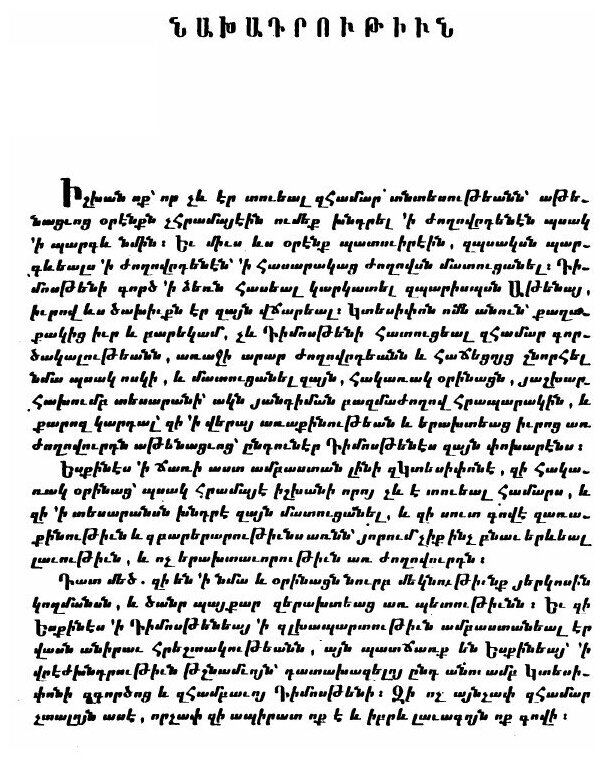 ՆԱԽԱԴՐՈՒԹԻՒՆ
Իշխան ոք՝ որ չև էր տուեալ զՀամար՝ տնտեսութեանն՝ աթե-
նացւոց օրէնքն չՀրամայէին ումեք խնդրել ՚ի ժողովրդենէն պսակ
՚ի պարգև նմին։ Եւ միւս ևս օրէնք պատուիրէին, զպսակն պար-
գևեալս ՚ի ժողովրդենէն՝ ՚ի Հասարակաց ժողովսն մատուցանել։ Դի-
մոսթենի գործ ՚ի ձեռն Հասեալ կարկատել զպարիսպսն Աթենայ,
իւրով ևս ծախիւքն էր զայն վՃարեալ։ Կտեսիփոն ոմն անուն՝ քաղա-
քակից իւր և բարեկամ, չև Դիմոսթենի Հատուցեալ զՀամար գոր-
ծակալութեանն, առաջի արար ժողովրդեանն և Հաճեցոյց շնորՀել
նմա պսակ ոսկի, և մատուցանել զայն, Հակառակ օրինացն, յաշխար-
Հախումբ տեսարանի՝ ակն յանդիման բազմաժողով Հրապարակին, և
քարոզ կարդալ՝ զի ՚ի վերայ առաքինութեան և երախտեաց իւրոց առ
ժողովուրդն աթենացւոց՝ ընդունէր Դիմոսթենէս զայն փոխարէնս։
Եսքինէս ՚ի Ճառի աստ ամբաստան լինի զԿտեսիփոնէ, զի Հակա-
ռակ օրինաց՝ պսակ Հրամայէ իշխանի որոյ չև է տուեալ Համարս, և
զի ՚ի տեսարանսն խնդրէ զայն մատուցանել, և զի սուտ գովէ զառա-
քինութիւն և զբարերարութիւնս առնն՝ յորում չիք ինչ բնաւ երևեալ
լաւութիւն, և ոչ երախտաւորութիւն առ ժողովուրդն։
Դատ մեծ. զի են ՚ի նմա և օրինացն նուրբ մեկնութիւնք յերկոսին
կողմանսն, և ծանր պայքար զերախտեաց առ պետութիւնն։ Եւ զի
Եսքինէս ՚ի Դիմոսթենեայ ՚ի գլխապարտութիւն ամբաստանեալ էր
վասն անիրաւ Հրեշտակութեանն, այն պատՃառք են Եսքինեայ՝ ՚ի
վրէժխնդրութիւն թշնամւոյն՝ դատախազելոյ ընդ անուամբ Կտեսի-
փոնի զգործոց և զՀամբաւոյ Դիմոսթենի։ Զի ոչ այնչափ զՀամար
չտալոյն ասէ, որչափ զի ապիրատ ոք է և իբրև լաւագոյն ոք գովի։